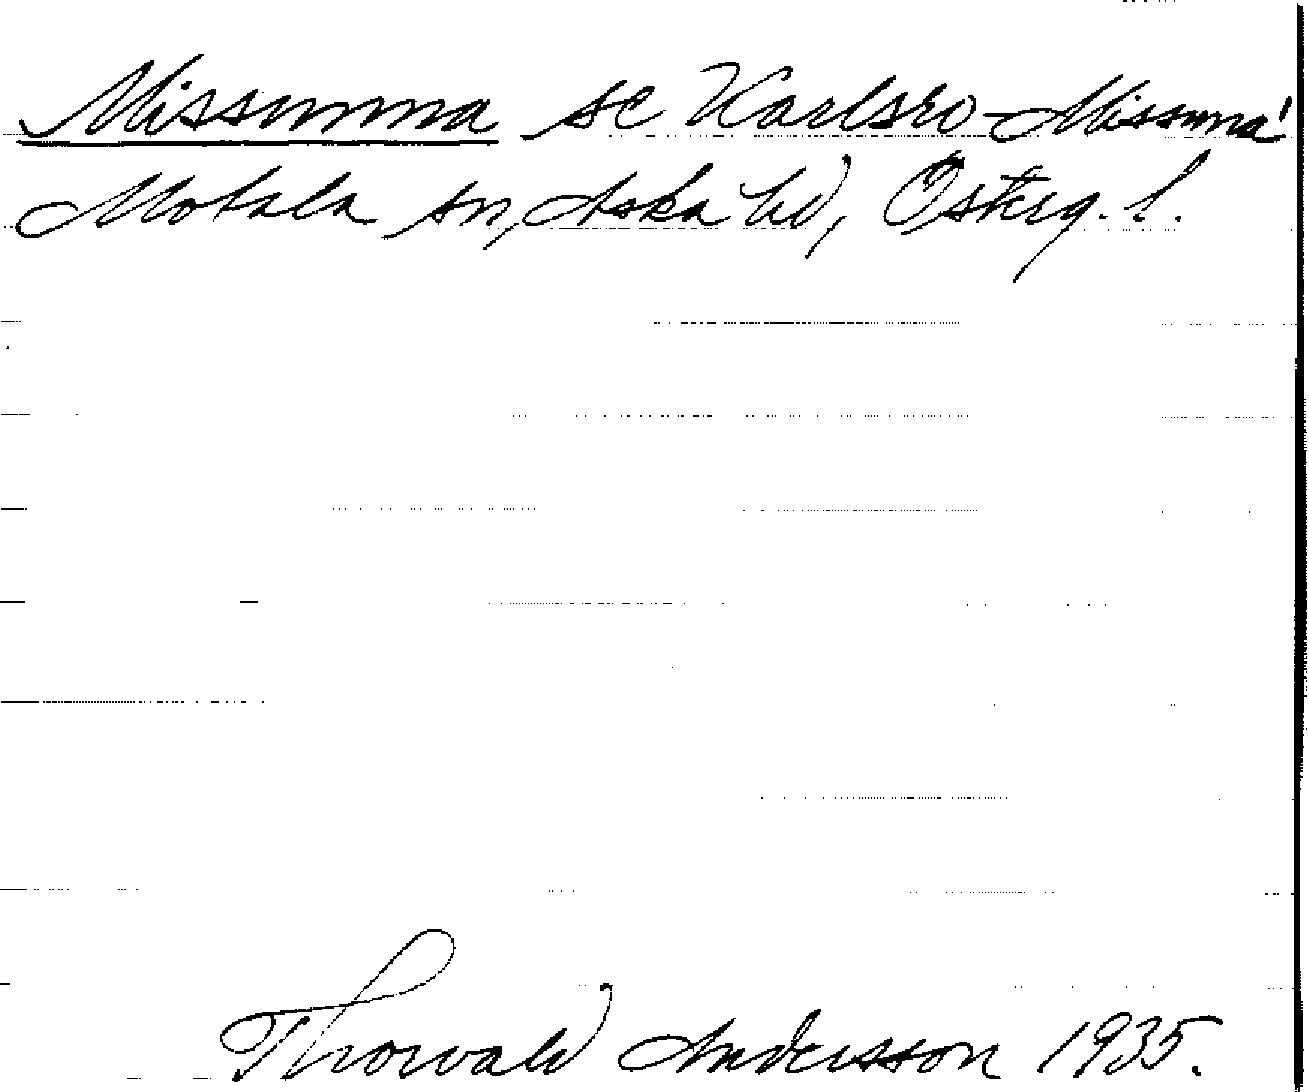 Missunna se Karlsro-Missunna!
Motala sn, Aska hd, Österg. l.
Thorvald Andersson 1935.